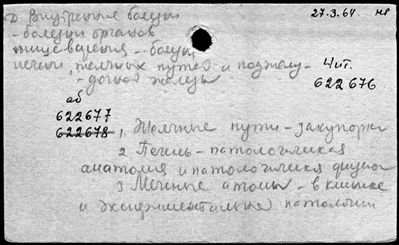 Внутренние болезни 27.3.64. нв
- болезни органов
пищеварения - болезни
печени, желчных путей и поджелу- Чит.
- дочной железы 622676
аб
622677
622678 1, Желчные пути - закупорки
2 Печень - патологическая
анатомия и патологическая физиол
3 Меченые атомы - в клинике
и экспериментальные патологии